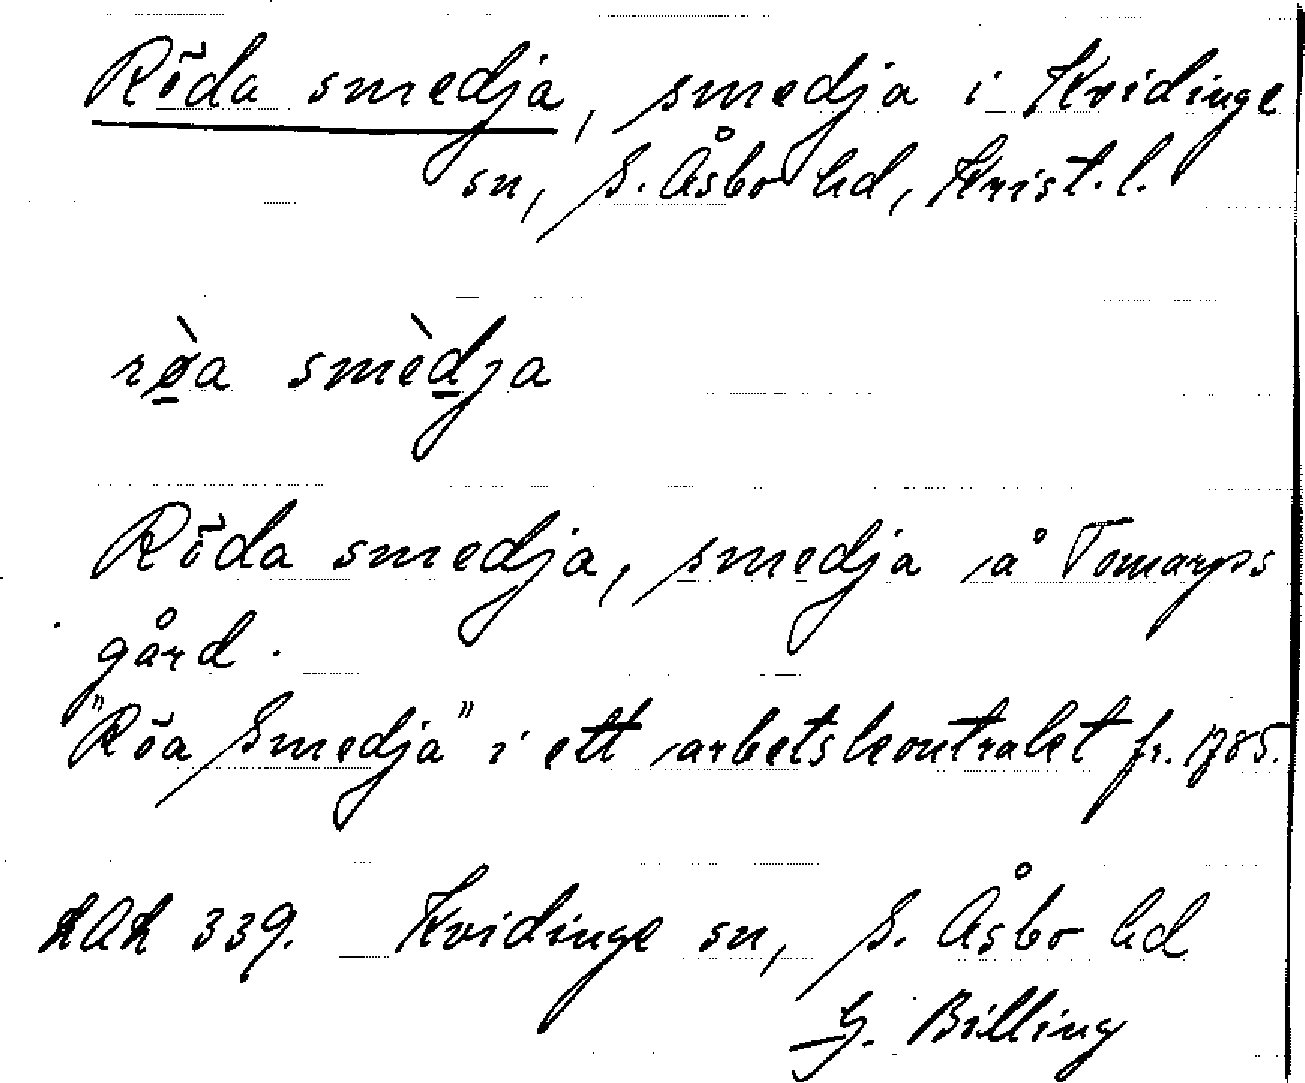 Röda smedja, smedja i Kvidinge
sn, S. Åsbo hd, Krist. l.
rø̀a smèdja
Röda smedja, smedja å Tomarps
gård.
"Röa Smedja" i ett arbetskontrakt fr. 1785.
LAL 339. Kvidinge sn, S. Åsbo hd
G. Billing